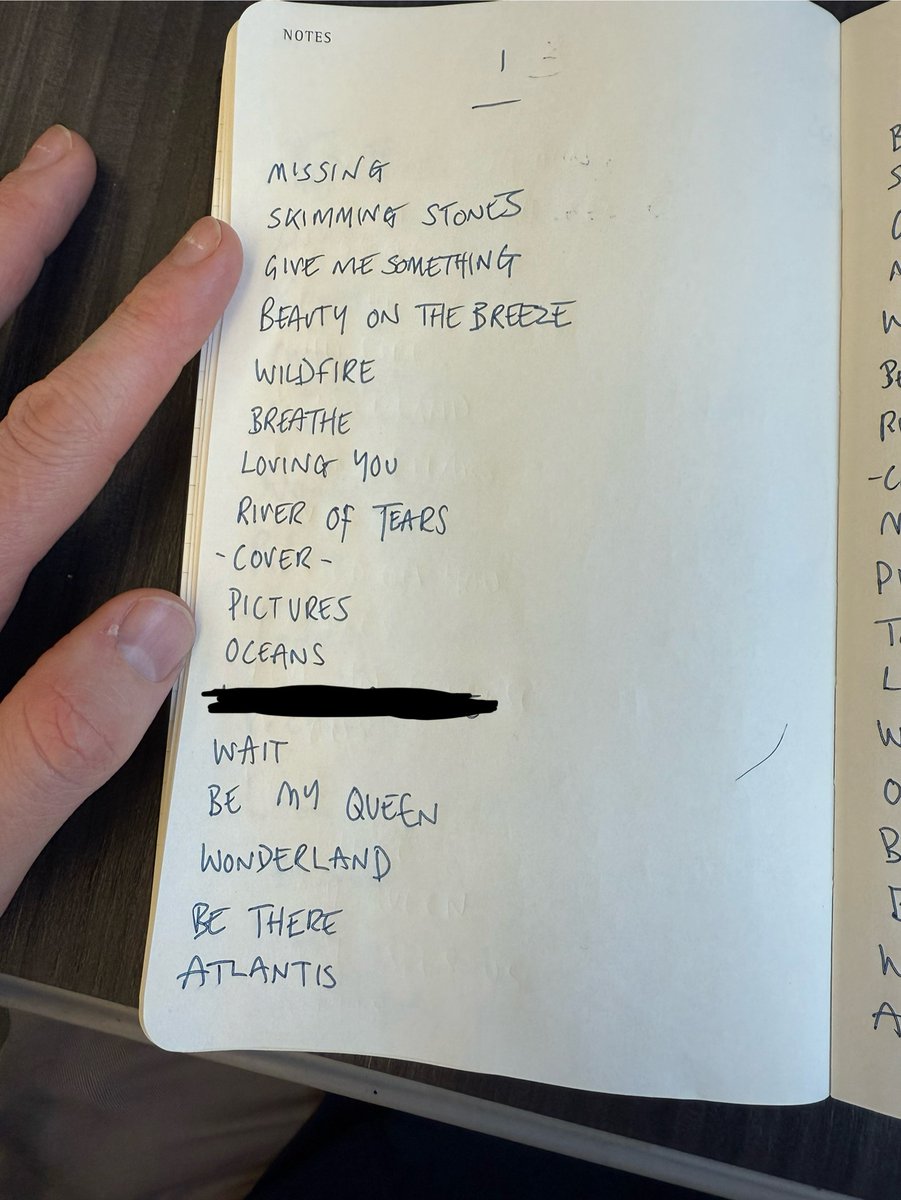 NOTES
1
MISSING
SKIMMING STONES
GIVE ME SOMETHING
BEAUTY ON THE BREEZE
WILDFIRE
BREATHE
LOVING YOU
RIVER OF TEARS
-COVER-
PICTURES
OCEANS
WAIT
BE MY QUEEN
WONDERLAND
BE THERE
ATLANTIS